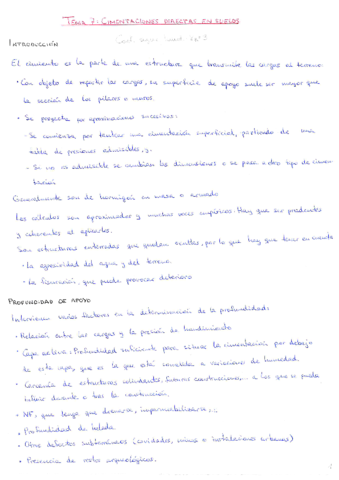 TEMA 7: CIMENTACIONES DIRECTAS EN SUELOS
INTRODUCCIÓN
El cimiento es la parte de una estructura que transmite las cargas al terreno.
• Con objeto de repartir las cargas, su superficie de apoyo suele ser mayor que
la sección de los pilares o muros.
• Se proyecta por aproximaciones sucesivas:
- Se comienza por tantear una cimentación superficial, partiendo de una
serie de presiones admisibles, y.
- Si no es admisible se cambian las dimensiones o se pasa a otro tipo de cimen
tación
Generalmente son de hormigón en masa o armado
Los cálculos son aproximados y muchas veces empíricos. Hay que ser prudentes
y coherentes al aplicarlos.
Son estructuras enterradas que quedan ocultas, por lo que hay que tener en cuenta
• La agresividad del agua y del terreno.
• La fisuración, que puede provocar deterioro
PROFUNDIDAD DE APOYO
Intervienen varios factores en la determinación de la profundidad:
• Relación entre las cargas y la presión de hundimiento
• Capa activa: Profundidad suficiente para situar la cimentación por debajo
de esta capa, que es la que está sometida a variaciones de humedad.
• Cercanía de estructuras colindantes, futuras construcciones,... a las que se pueda
influir durante o tras la construcción.
• NF, que haga que drenaria, impermeabilizarse,..
• Profundidad de helada.
• Otros defectos subterráneos (cavidades, minas o instalaciones urbanas)
• Presencia de restos arqueológicos.